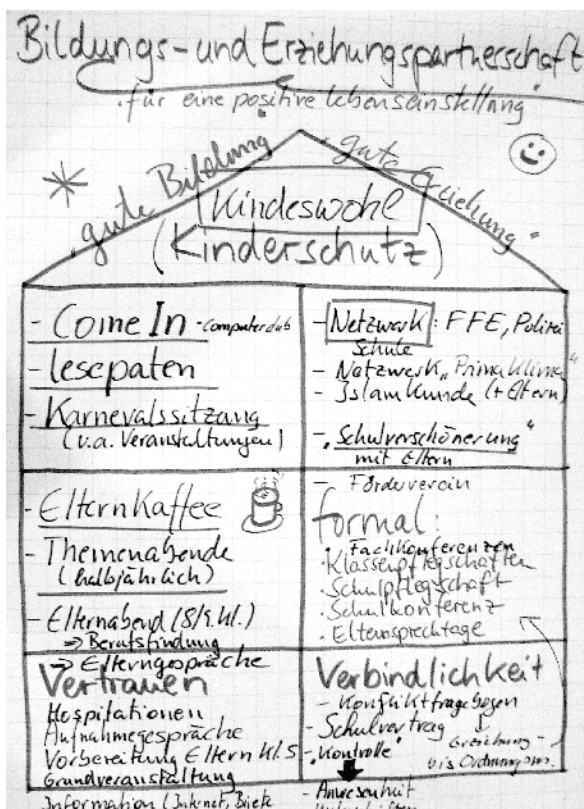 Bildungs- und Erziehungspartnerschaft
"für eine positive Lebenseinstellung"
"gute Bildung"
"gute Erziehung"
Kindeswohl
(Kinderschutz)
- Come In - Computerclub
- Lesepaten
- Karnevalssitzung
(u.a. Veranstaltungen)
- Netzwerk: FFE, Polizei
Schule
- Netzwerk "Prima Klima"
- Islamkunde (+ Eltern)
- "Schulverschönerung"
mit Eltern
- Elternkaffee
- Themenabende
(halbjährlich)
- Elternabend (8/9. Kl.)
⇒ Berufsfindung
→ Elterngespräche
- Förderverein
formal:
· Fachkonferenzen
· Klassenpflegschaften
· Schulpflegschaft
· Schulkonferenz
· Elternsprechtage
Vertrauen
Hospitationen
Aufnahmegespräche
Vorbereitung Eltern Kl. 5
Grundveranstaltung
Information (Internet, Briefe
Verbindlichkeit
- Konfliktfragebogen
- Schulvertrag
Erziehung-
bis Ordnungsm.
- "Kontrolle"
- Anwesenheit